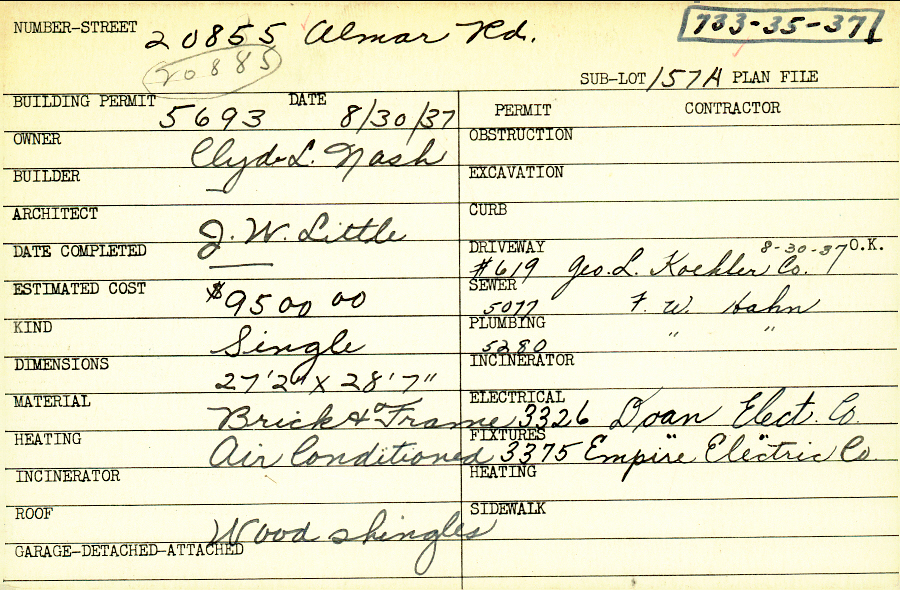 NUMBER-STREET 20855 Almar Rd. 733-35-37
20885
SUB-LOT 157A PLAN FILE
BUILDING PERMIT 5693 DATE 8/30/37 PERMIT CONTRACTOR
OWNER Clyde L. Nash OBSTRUCTION
BUILDER — EXCAVATION
ARCHITECT J. W. Little CURB
DATE COMPLETED — DRIVEWAY #619 Geo. L. Koehler Co. 8-30-37 O.K.
ESTIMATED COST $9500 00 SEWER 5077 F. W. Hahn
KIND Single PLUMBING 5280 " "
DIMENSIONS 27'2" X 28'7" INCINERATOR
MATERIAL Brick & Frame ELECTRICAL 3326 Doan Elect. Co.
HEATING Air Conditioned FIXTURES 3375 Empire Electric Co.
INCINERATOR HEATING
ROOF Wood shingles SIDEWALK
GARAGE-DETACHED-ATTACHED